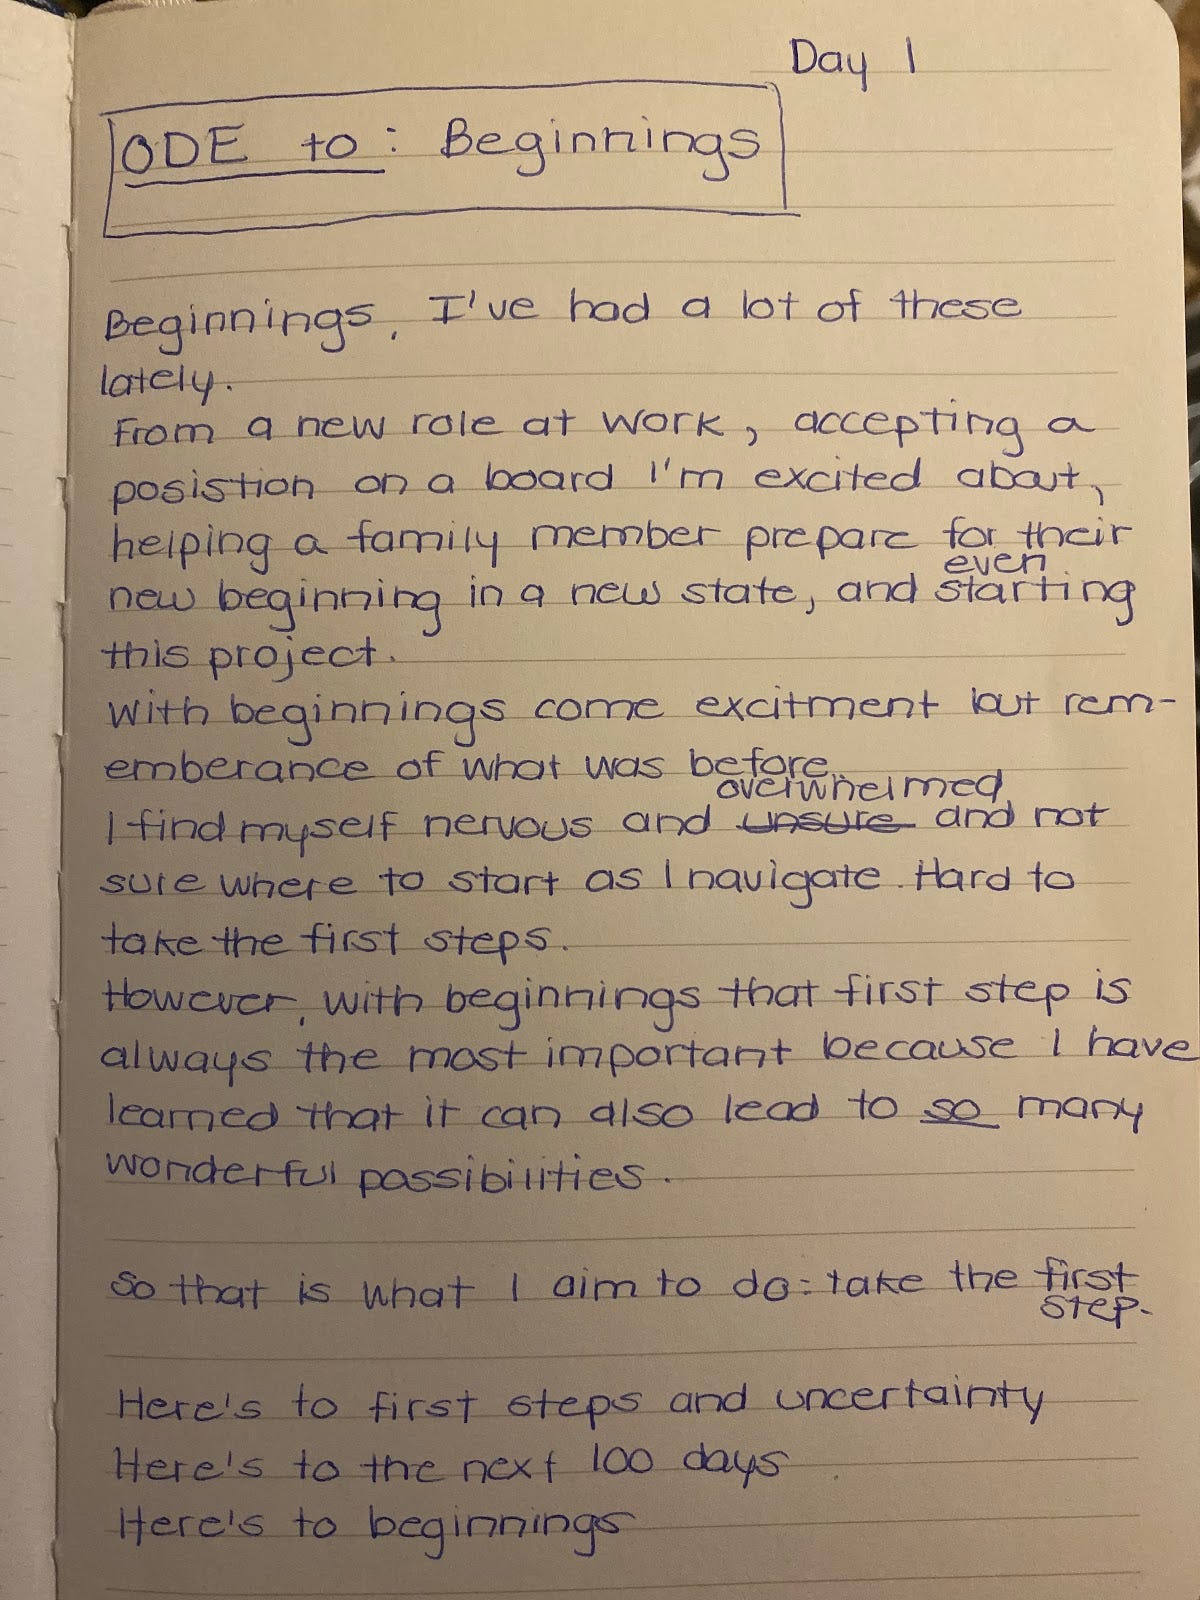 Day 1
ODE to: Beginnings
Beginnings, I've had a lot of these
lately.
From a new role at work, accepting a
posistion on a board I'm excited about,
helping a family member prepare for their
even
new beginning in a new state, and starting
this project.
With beginnings come excitment but rem-
emberance of what was before.
overwhelmed
I find myself nervous and unsure and not
sure where to start as I navigate. Hard to
take the first steps.
However, with beginnings that first step is
always the most important because I have
learned that it can also lead to so many
wonderful possibilities.
So that is what I aim to do: take the first
step.
Here's to first steps and uncertainty
Here's to the next 100 days
Here's to beginnings